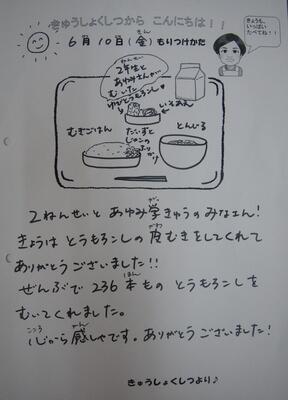 きゅうしょくしつから こんにちは！！
きょうも、
いっぱい
たべてね！！
6月10日(金) もりつけかた
きん
ねんせい
2年生と
あゆみさんが
むいた
ゆでとうもろこし♥
いそあえ
むぎごはん
だいずと
じゃこの
とんじる
2ねんせいと あゆみ学きゅうの みなさん！
がっ
きょうは とうもろこしの 皮むきをしてくれて
かわ
ありがとうございました!!
ぜんぶで 236本もの とうもろこしを
ほん
むいてくれました。
心から 感しゃです。ありがとうございました！
こころ
かん
きゅうしょくしつより♪